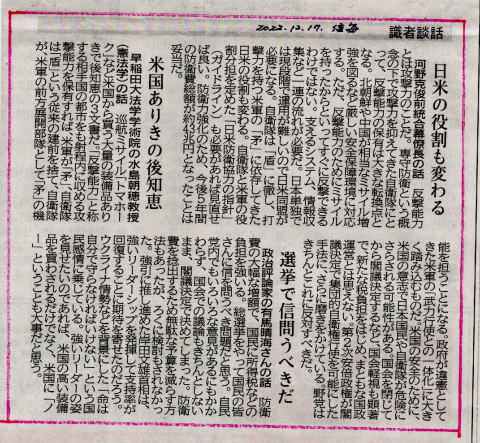 2022.12.17. 信毎
識者談話
日米の役割も変わる
河野克俊前統合幕僚長の話 反撃能力
とは攻撃力のことだ。専守防衛という概
念の下で攻撃力を抑えてきた自衛隊にと
って、反撃能力の保有は大きな転換点と
なる。北朝鮮や中国が相当なミサイル増
強を図るなど厳しい安全保障環境に対応
する。ただ、反撃するためのミサイル
を持ったからといってすぐに反撃できる
わけではない。支えるシステム、情報収
集など一連の流れが必要だ。日本単独で
は現段階で運用が難しいので日米同盟が
必要になる。自衛隊は「盾」に徹し、打
撃力を持つ米軍の「矛」に依存してきた
日米の役割も変わる。自衛隊と米軍の役
割分担を定めた「日米防衛協力の指針」
（ガイドライン）も必要があれば見直せ
ば良い。防衛力強化のため、今後５年間
の防衛費総額が約43兆円となったことは
妥当だ。
米国ありきの後知恵
早稲田大法学学術院の水島朝穂教授
（憲法学）の話 巡航ミサイル「トマホー
ク」など米国から買う大量の装備品あり
きで後知恵の３文書だ。「反撃能力」と称
する相手国の都市をも射程内に収める攻
撃能力を保有すれば、米軍が「矛」、自衛隊
は「盾」という従来の建前を捨て、自衛隊
が、米軍の前方展開部隊として「矛」の機
能を担うことになる。政府が違憲として
きた米軍の「武力行使との一体化」に大き
く踏み込むものだ。米国の安全のために、
米国の意志で日本国民や自衛隊が危険に
さらされる可能性がある。国会を閉じて
から閣議決定するなど、国会軽視も顕著
で、新たな税負担をはじめ、まともな国政
運営とは思えない。第２次安倍政権が閣
議決定で集団的自衛権行使を可能にした
手法に、さらに磨きをかけている。野党は
きちんとこれに反対すべきだ。
選挙で信問うべきだ
政治評論家の有馬晴海さんの話 防衛
費の大幅な増額で、国民に所得税などの
負担を強いる。総選挙をやって国民の皆
さんに信を問うべき問題だと思う。自民
党内でもいろいろな意見があるにもかか
わらず、国会での議論もきちんとしない
まま、閣議決定で決めてしまった。防衛
費を捻出するため無駄な予算を減らす方
法もあったが、ろくに検討もされなかっ
た。強引に推し進めた岸田文雄首相は、
強いリーダーシップを発揮して支持率が
回復することに期待を寄せたのだろう。
ウクライナ情勢などを背景とした「命は
自分で守らなければいけない」という国
民感情に乗っている。強いリーダーの姿
を見せたいのであれば、米国の高い装備
品を買わされるだけでなく、米国に「ノ
ー」ということも大事だと思う。